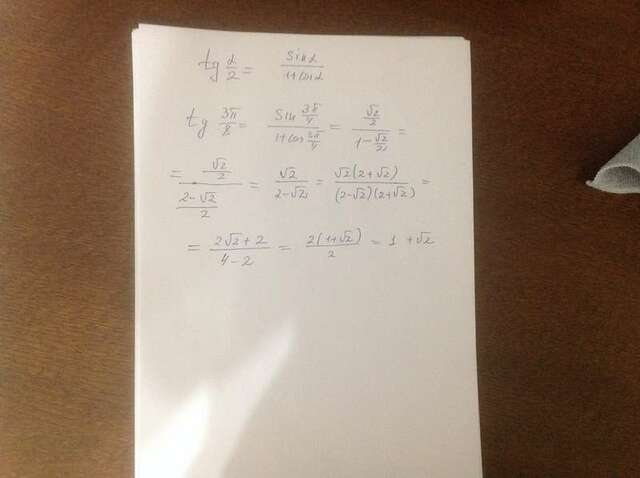 tg α/2 = sinα/(1+cosα)
tg 3π/8 = sin 3π/4/(1+cos 3π/4) = (√2/2)/(1-√2/2) =
= (√2/2)/((2-√2)/2) = √2/(2-√2) = √2(2+√2)/((2-√2)(2+√2)) =
= (2√2+2)/(4-2) = 2(1+√2)/2 = 1+√2